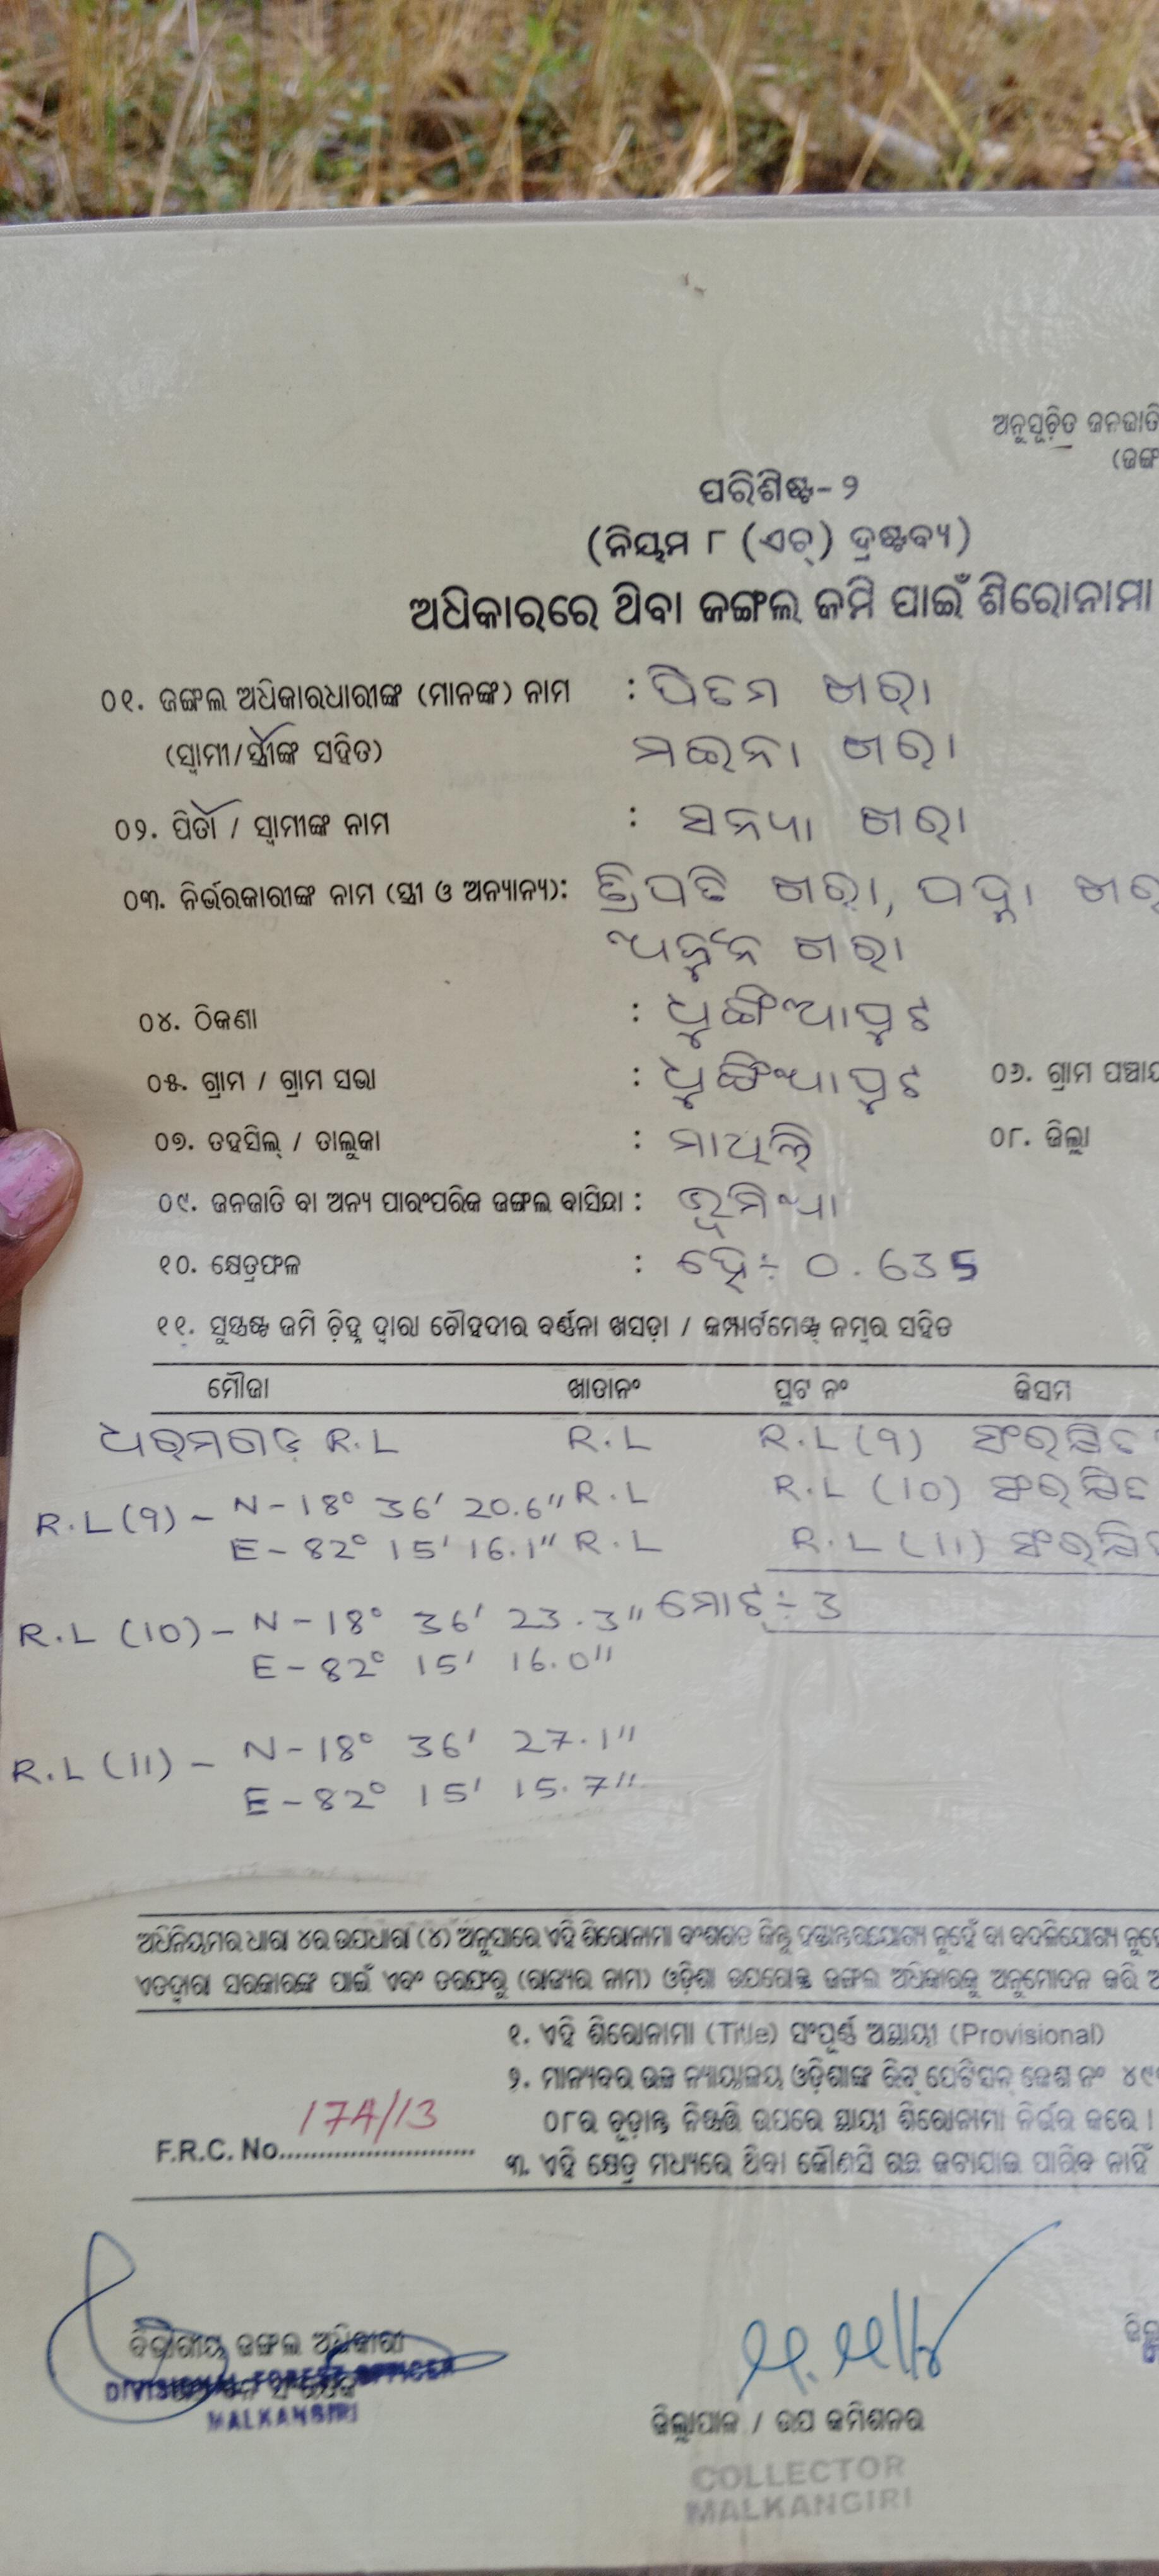 ଅନୁସୂଚିତ ଜନଜାତି
(ଜଙ୍ଗ
ପରିଶିଷ୍ଟ-୨
(ନିୟମ ୮ (ଏଚ୍) ଦ୍ରଷ୍ଟବ୍ୟ)
ଅଧିକାରରେ ଥିବା ଜଙ୍ଗଲ ଜମି ପାଇଁ ଶିରୋନାମା
୦୧. ଜଙ୍ଗଲ ଅଧିକାରଧାରୀଙ୍କ (ମାନଙ୍କ) ନାମ : ପିତମ ଖରା
(ସ୍ୱାମୀ/ସ୍ତ୍ରୀଙ୍କ ସହିତ) ମଇନା ଖରା
୦୨. ପିତା / ସ୍ୱାମୀଙ୍କ ନାମ : ସନ୍ୟା ଖରା
୦୩. ନିର୍ଭରକାରୀଙ୍କ ନାମ (ସ୍ତ୍ରୀ ଓ ଅନ୍ୟାନ୍ୟ): ତ୍ରିପତି ଖରା, ପଦ୍ମା ଖରା
ଅର୍ଜୁନ ଖରା
୦୪. ଠିକଣା : ଧୁଙ୍ଗିଆପୁଟ
୦୫. ଗ୍ରାମ / ଗ୍ରାମ ସଭା : ଧୁଙ୍ଗିଆପୁଟ ୦୬. ଗ୍ରାମ ପଞ୍ଚାୟ
୦୭. ତହସିଲ୍ / ତାଲୁକା : ମାଥିଲି ୦୮. ଜିଲ୍ଲା
୦୯. ଜନଜାତି ବା ଅନ୍ୟ ପାରଂପରିକ ଜଙ୍ଗଲ ବାସିନ୍ଦା : ଭୂମିଆ
୧୦. କ୍ଷେତ୍ରଫଳ : ହେ÷ 0.635
୧୧. ସୁସ୍ପଷ୍ଟ ଜମି ଚିହ୍ନ ଦ୍ୱାରା ଚୌହଦୀର ବର୍ଣ୍ଣନା ଖସଡ଼ା / କମ୍ପାର୍ଟମେଣ୍ଟ ନମ୍ବର ସହିତ
ମୌଜା ଖାତାନଂ ପ୍ଲଟ ନଂ କିସମ
ଧରମଗଡ଼ R.L R.L R.L (9) ସଂରକ୍ଷିତ
R.L (9) - N-18° 36' 20.6" R.L R.L (10) ସଂରକ୍ଷିତ
E-82° 15' 16.1" R.L R.L (11) ସଂରକ୍ଷିତ
R.L (10) - N-18° 36' 23.3" ମୋଟ÷ 3
E-82° 15' 16.0"
R.L (11) - N-18° 36' 27.1"
E-82° 15' 15.7"
ଅଧିନିୟମର ଧାରା ୪ର ଉପଧାରା (୪) ଅନୁସାରେ ଏହି ଶିରୋନାମା ବଂଶଗତ କିନ୍ତୁ ହସ୍ତାନ୍ତରଯୋଗ୍ୟ ନୁହେଁ ବା ବଦଳିଯୋଗ୍ୟ ନୁହେଁ
ଏତଦ୍ୱାରା ସରକାରଙ୍କ ପାଇଁ ଏବଂ ତରଫରୁ (ରାଜ୍ୟର ନାମ) ଓଡ଼ିଶା ଉପରୋକ୍ତ ଜଙ୍ଗଲ ଅଧିକାରକୁ ଅନୁମୋଦନ କରି
୧. ଏହି ଶିରୋନାମା (Title) ସଂପୂର୍ଣ୍ଣ ଅସ୍ଥାୟୀ (Provisional)
୨. ମାନ୍ୟବର ଉଚ୍ଚ ନ୍ୟାୟାଳୟ ଓଡ଼ିଶାଙ୍କ ରିଟ୍ ପେଟିସନ୍ କେଶ ନଂ ୪୯
୦୮ର ଚୂଡ଼ାନ୍ତ ନିଷ୍ପତ୍ତି ଉପରେ ସ୍ଥାୟୀ ଶିରୋନାମା ନିର୍ଭର କରେ ।
F.R.C. No. 17A/13
୩. ଏହି କ୍ଷେତ୍ର ମଧ୍ୟରେ ଥିବା କୌଣସି ଗଛ କଟାଯାଇ ପାରିବ ନାହିଁ
ବିଭାଗୀୟ ଜଙ୍ଗଲ ଅଧିକାରୀ
DIVISIONAL FOREST OFFICER
MALKANGIRI
ଜିଲ୍ଲାପାଳ / ଉପ କମିଶନର
COLLECTOR
MALKANGIRI